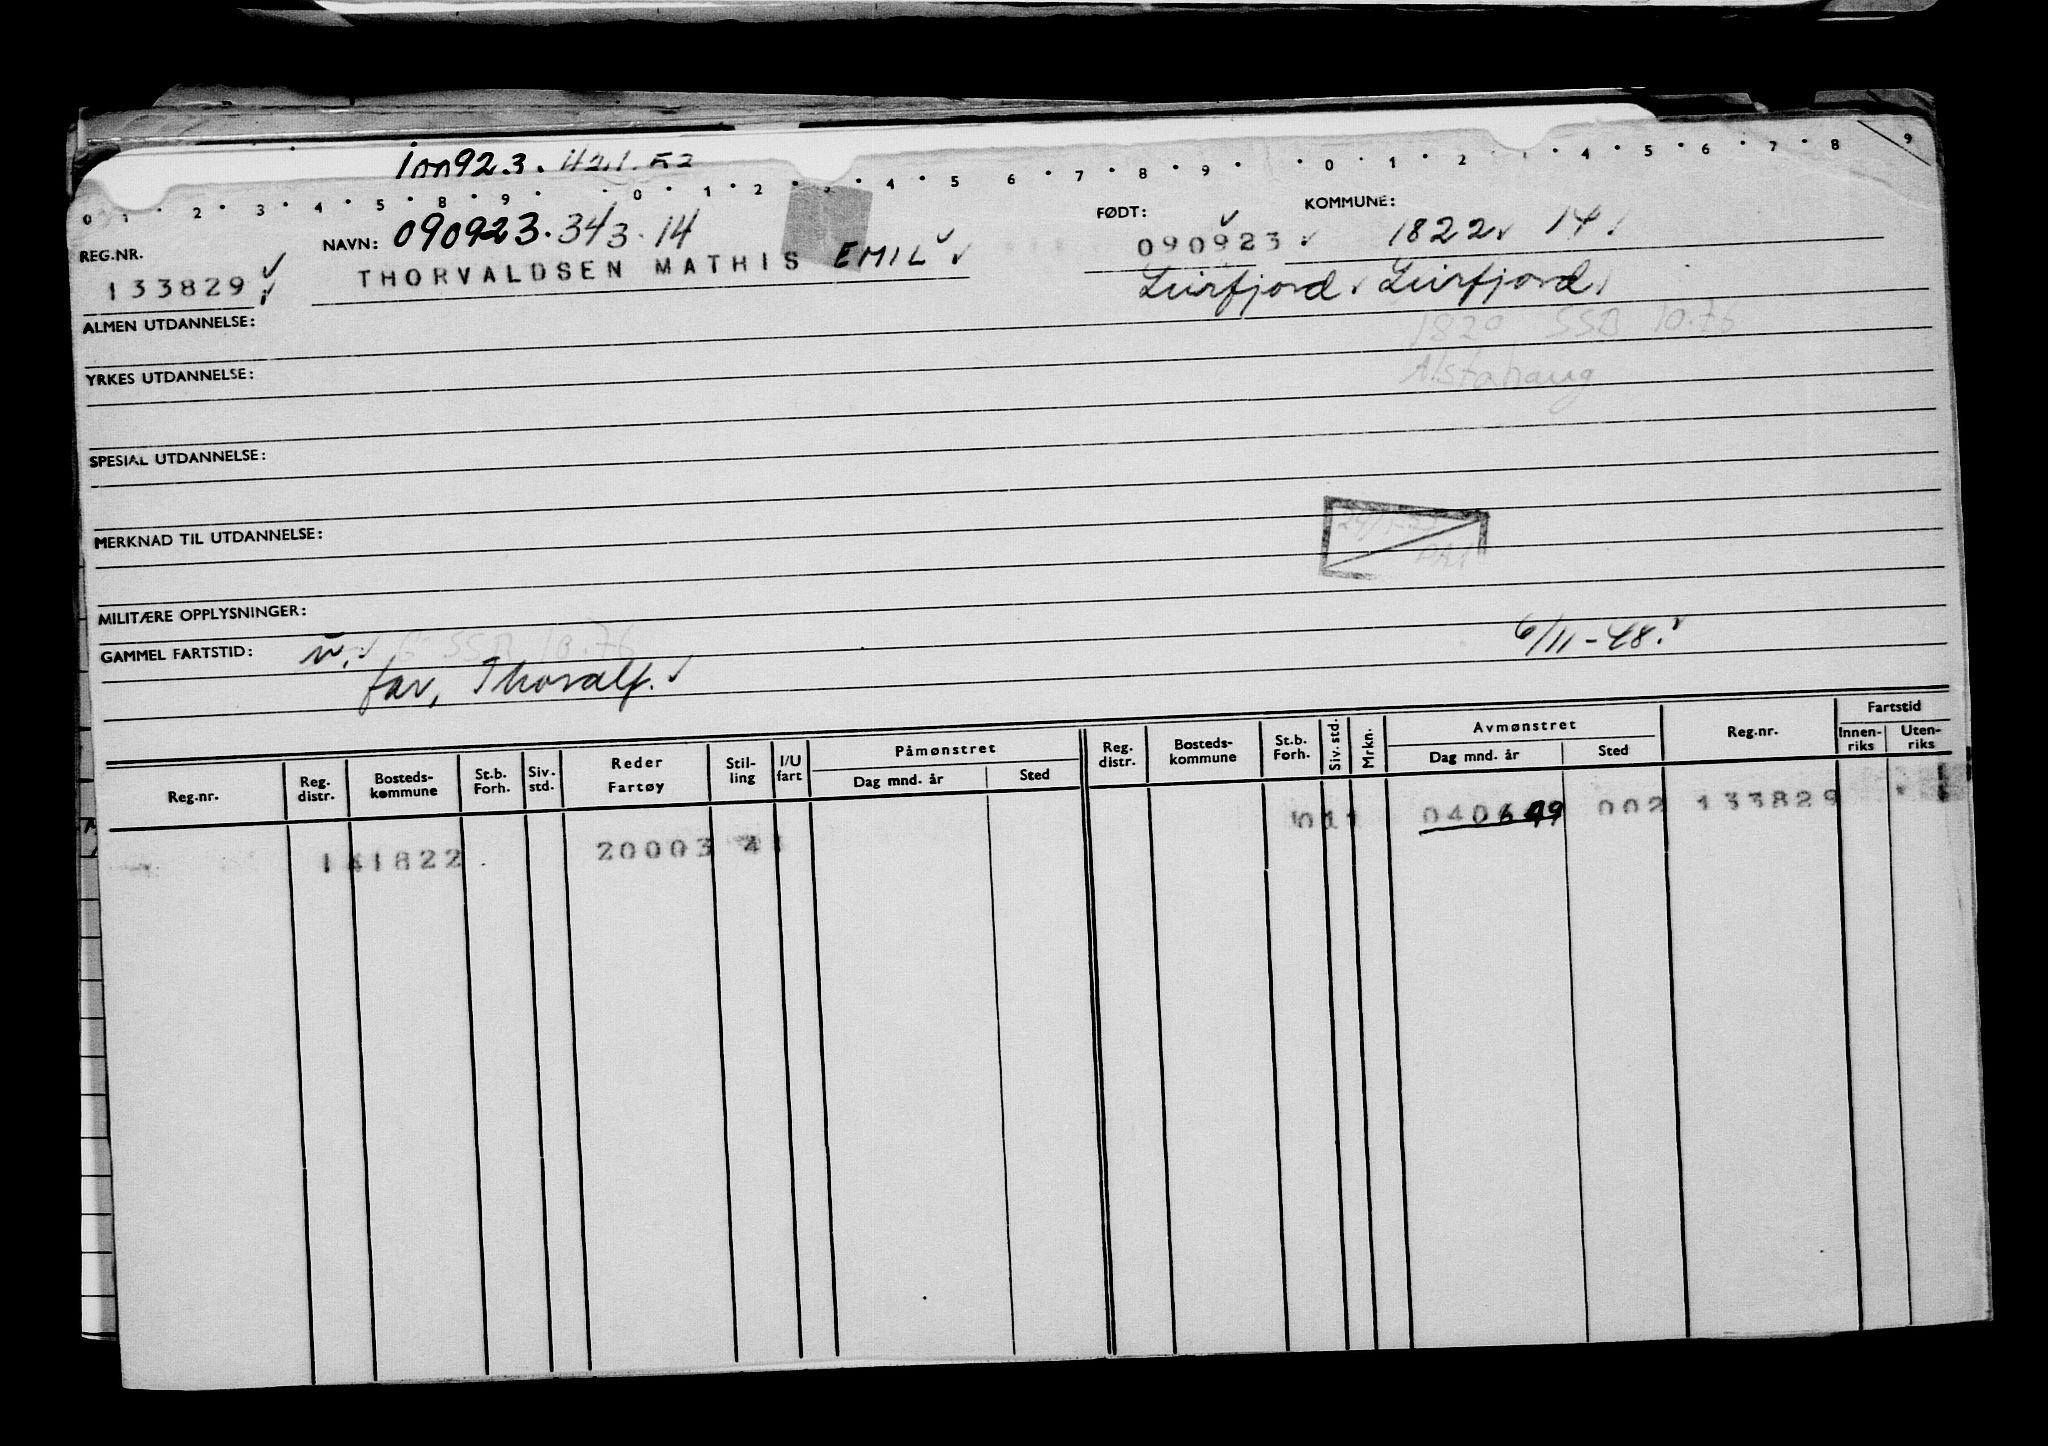 090923. 343. 14
REG.NR.
133829
NAVN:
THORVALDSEN MATHIS EMIL
FØDT:
090923
KOMMUNE:
1822 14
Leirfjord Leirfjord
1820 SSB 10.76
Alstahaug
ALMEN UTDANNELSE:
YRKES UTDANNELSE:
SPESIAL UTDANNELSE:
MERKNAD TIL UTDANNELSE:
MILITÆRE OPPLYSNINGER:
GAMMEL FARTSTID:
SSB 10.76
6/11-48.
far, Thoralf.
Reg.nr. Reg. distr. Bosteds- kommune St.b. Forh. Siv. std. Reder Fartøy Stil- ling I/U fart Påmønstret Dag mnd. år Sted Reg. distr. Bosteds- kommune St.b. Forh. Siv. std. Mrkn. Avmønstret Dag mnd. år Sted Reg.nr. Fartstid Innen- riks Uten- riks
141822 20003 040649 002 133829